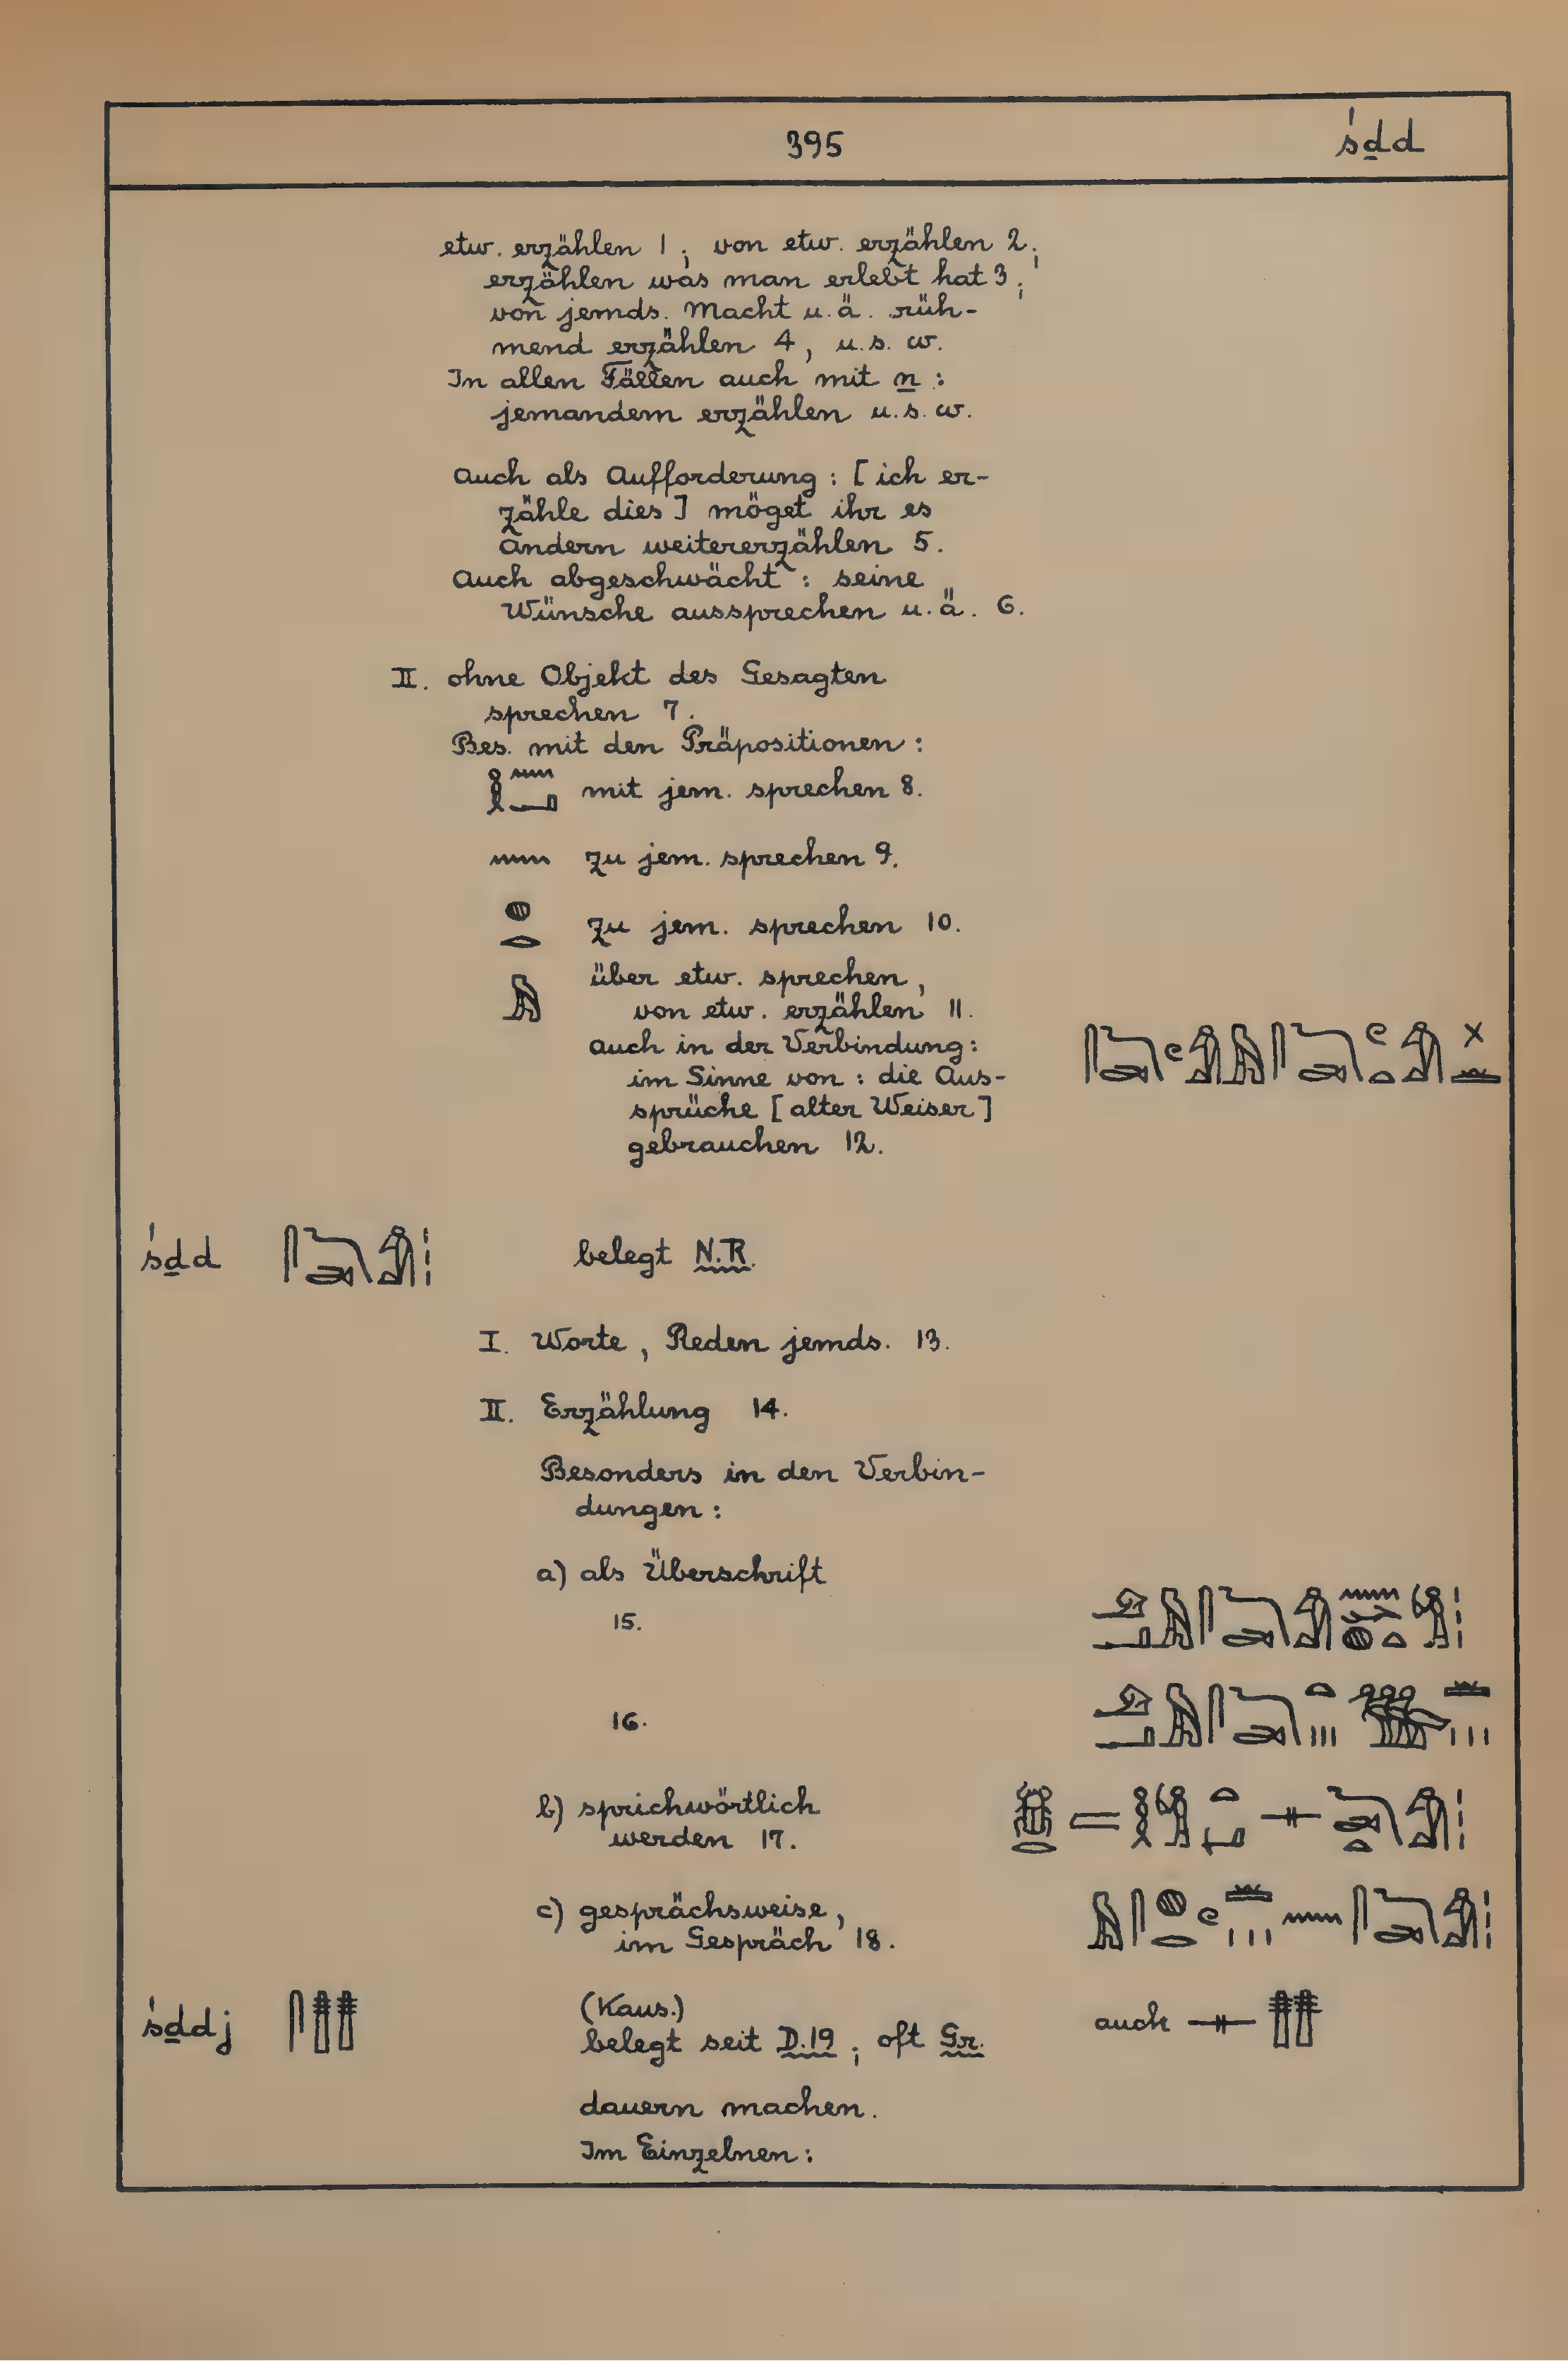 395
śḏd
etw. erzählen 1; von etw. erzählen 2;
erzählen was man erlebt hat 3;
von jemds. Macht u.ä. rüh-
mend erzählen 4, u.s.w.
In allen Fällen auch mit n:
jemandem erzählen u.s.w.
Auch als Aufforderung: [ich er-
zähle dies] möget ihr es
Andern weitererzählen 5.
Auch abgeschwächt: seine
Wünsche aussprechen u.ä. 6.
II. ohne Objekt des Gesagten
sprechen 7.
Bes. mit den Präpositionen:
mit jem. sprechen 8.
𓈖 zu jem. sprechen 9.
𓐍𓂋 zu jem. sprechen 10.
𓅓 über etw. sprechen,
von etw. erzählen 11.
auch in der Verbindung:
im Sinne von: die Aus-
sprüche [alter Weiser]
gebrauchen 12.
śḏd belegt N.R.
I. Worte, Reden jemds. 13.
II. Erzählung 14.
Besonders in den Verbin-
dungen:
a) als Überschrift
15.
16.
b) sprichwörtlich
werden 17.
c) gesprächsweise,
im Gespräch 18.
śḏdj 𓋴𓊽𓊽 (Kaus.) auch 𓊃𓊽𓊽
belegt seit D.19; oft Gr.
dauern machen.
Im Einzelnen: